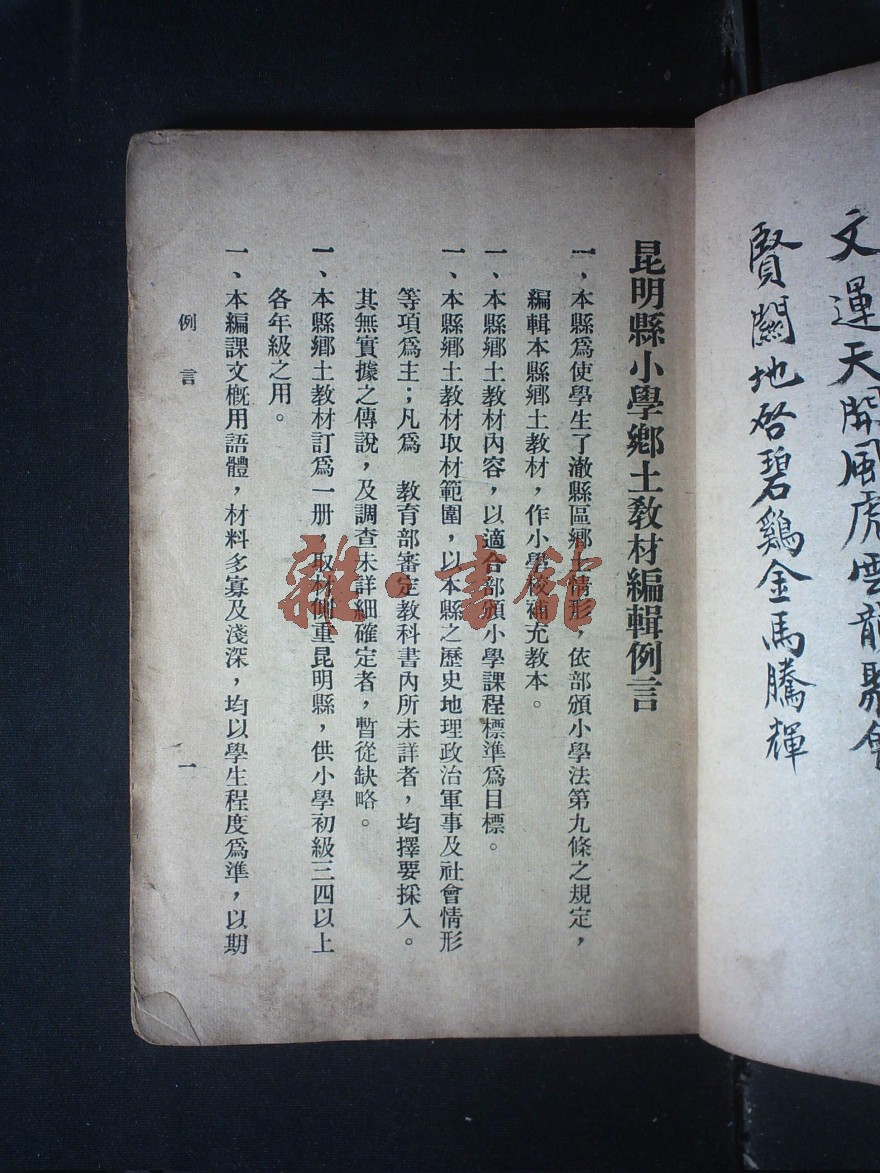 文運天開風虎雲龍聚會
賢關地啓碧鷄金馬騰輝
昆明縣小學鄉土教材編輯例言
一，本縣爲使學生了澈縣區鄉土情形，依部頒小學法第九條之規定，
編輯本縣鄉土教材，作小學校補充教本。
一、本縣鄉土教材內容，以適合部頒小學課程標準爲目標。
一、本縣鄉土教材取材範圍，以本縣之歷史地理政治軍事及社會情形
等項爲主；凡爲　教育部審定教科書內所未詳者，均擇要採入。
其無實據之傳說，及調查未詳細確定者，暫從缺略。
一、本縣鄉土教材訂爲一册，取材側重昆明縣，供小學初級三四以上
各年級之用。
一、本編課文槪用語體，材料多寡及淺深，均以學生程度爲準，以期
例言
一
雜·書館